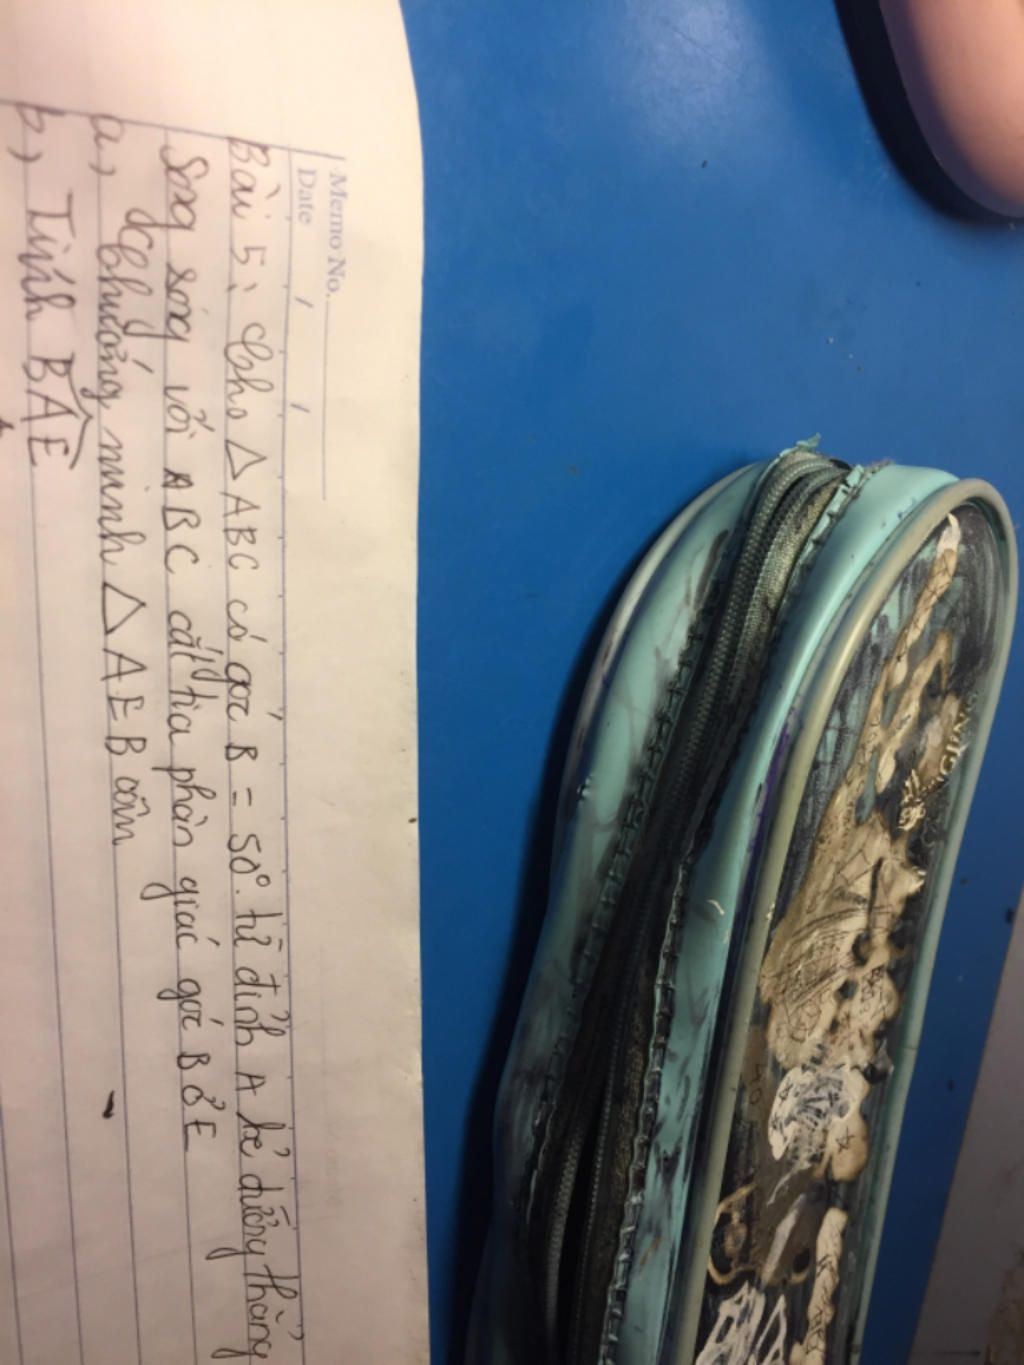 Memo No.
Date / /
Bài 5: Cho △ ABC có góc B = 50°. từ đỉnh A kẻ đường thẳng
Song song với ABC cắt tia phân giác góc B ở E
a, Chướng minh △ AEB cân
b, Tính BAE